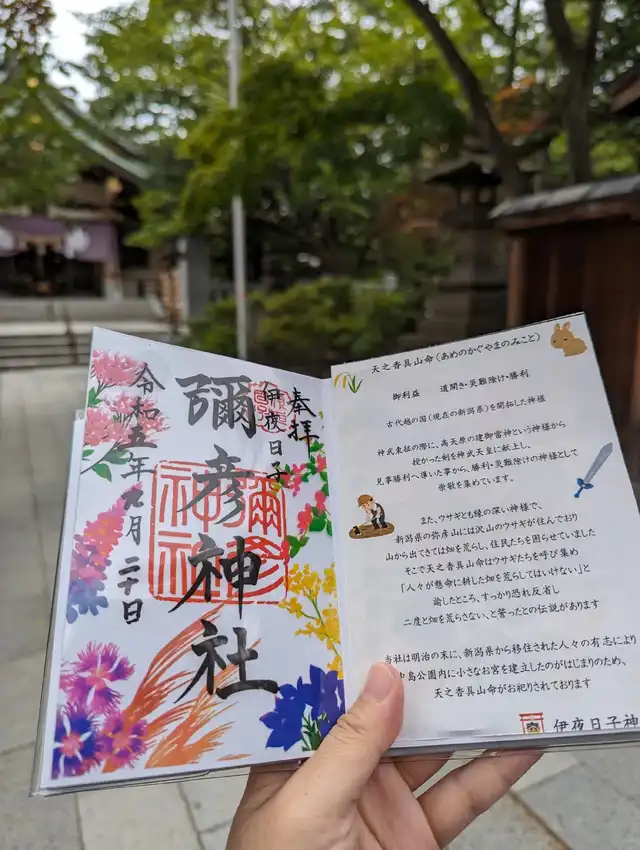 奉拝
伊夜日子
彌彦神社
彌彦
神社
令和五年九月二十日
天之香具山命(あめのかぐやまのみこと)
御利益　道開き・災難除け・勝利
古代越の国(現在の新潟県)を開拓した神様
神武東征の際に、高天原の建御雷神という神様から
授かった剣を神武天皇に献上し、
見事勝利へ導いた事から、勝利・災難除けの神様として
崇敬を集めています。
また、ウサギとも縁の深い神様で、
新潟県の弥彦山には沢山のウサギが住んでおり
山から出てきては畑を荒らし、住民たちを困らせていました
そこで天之香具山命はウサギたちを呼び集め
「人々が懸命に耕した畑を荒らしてはいけない」と
諭したところ、すっかり恐れ反省し
二度と畑を荒らさない、と誓ったとの伝説があります
当社は明治の末に、新潟県から移住された人々の有志により
中島公園内に小さなお宮を建立したのがはじまりのため、
天之香具山命がお祀りされております
伊夜日子神